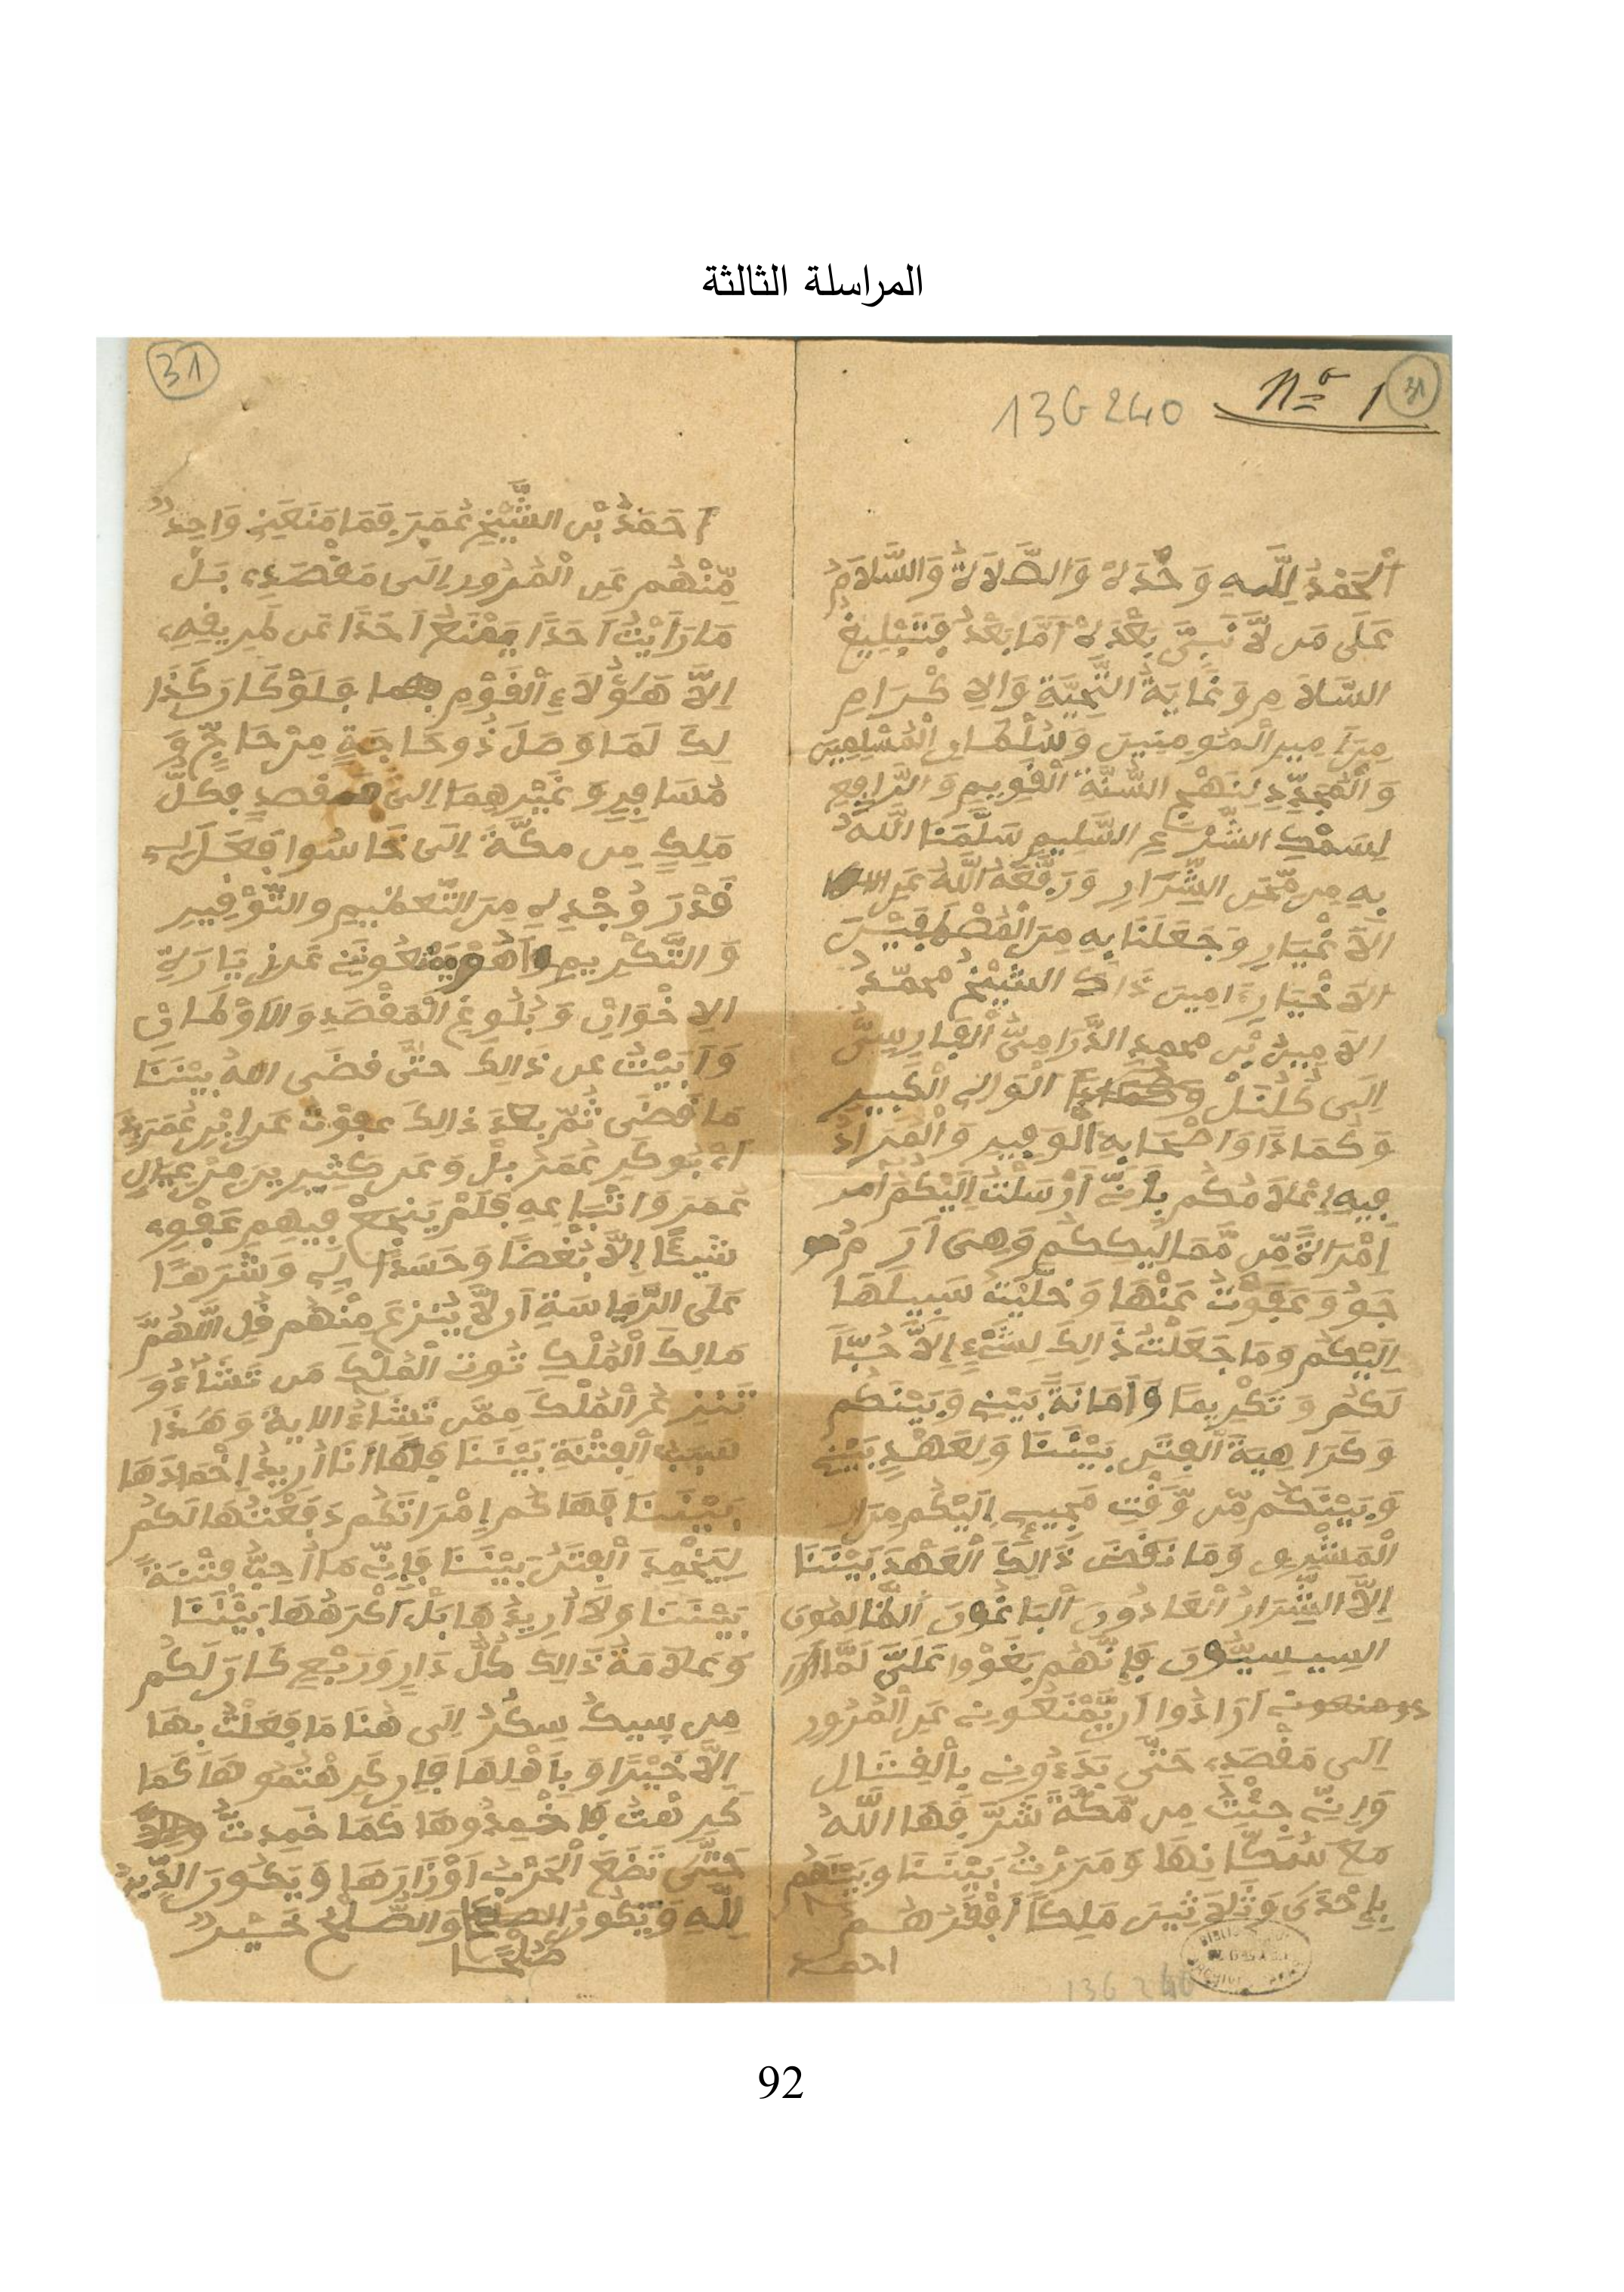 المراسلة الثالثة
31
Nº 1
13G240
اَلْحَمْدُ لِلَّهِ وَحْدَهُ وَالصَّلَاةُ وَالسَّلَامُ
عَلَى مَن لَّا نَبِيَّ بَعْدَهُ أَمَّا بَعْدُ فَتَبْلِيغُ
السَّلَامِ وَغَايَةُ التَّحِيَّةِ وَالإِكْرَامِ
مِنَ امِيرِ الْمُومِنِينَ وَسُلْطَانِ الْمُسْلِمِينَ
وَالْمُجَدِّدِ لِنَهْجِ السُّنَّةِ الْقَوِيمِ وَالرَّافِعِ
لِسَمْكِ الشَّرْعِ السَّلِيمِ سَلَّمَنَا اللَّهُ
بِهِ مِن مِّحَنِ الشِّرَارِ وَرَفَّعَهُ اللَّهُ عَنِ
الاَغْيَارِ وَجَعَلَنَا بِهِ مِنَ الْمُصْطَفَيْنَ
الاَخْيَارِ ءَامِينَ ذَاكَ الشَّيْخُ محمَّدُ
الاَمِينُ بْنُ محمدٍ الدَّرَامِيُّ الْفَارِسِيُّ
إِلَى كُلُنَلْ الْوَالِي الْكَبِيرِ
وَكُمَادَا وَاَصْحَابِهِ الْوَفِيرِ وَالْمُرَادُ
فِيهِ إِعْلَامُكُم بِأَنِّي أَرْسَلْتُ إِلَيْكُمْ امر
إِمْرَاةً مِّن مَّمَالِيكِكُمْ وَهِىَ
وَعَفَوْتُ عَنْهَا وَخَلَّيْتُ سَبِيلَهَا
إِلَيْكُمْ وَمَا جَعَلْتُ ذَالِكَ لِشَيْءٍ إِلاَّ حُبّاً
لَكُمْ وَتَكْرِيماً وَأَمَانَةً بَيْنِي وَبَيْنَكُمْ
وَكَرَاهِيَةَ الْفِتَنِ بَيْنَنَا وَلِعَهْدٍ بَيْنِي
وَبَيْنَكُم مِّن وَّقْتِ مَجِيئِي إِلَيْكُم مِنَ
الْمَشْرِقِ وَمَا نَقَضَ ذَالِكَ الْعَهْدَ بَيْنَنَا
إِلاَّ الشِّرَارُ الْعَادُونَ الْبَاغُونَ الظَّالِمُونَ
السِيسِيُّونَ فَإِنَّهُم بَغَوْا عَلَيَّ لَمَّا
أَرَادُوا أَن يَّمْنَعُونِي عَنِ الْمُرُورِ
إِلَى مَقْصَدِي حَتَّى بَدَءُونِي بِالْقِتَالِ
وَإِنِّي جِئْتُ مِن مَّكَّةَ شَرَّفَهَا اللَّهُ
مَعَ سُكَّانِهَا وَمَرَرْتُ بَيْنَنَا وَبَيْنَهُمْ
بِإِحْدَى وَثَلَاثِينَ مَلِكاً أَفْقَرُهُمْ
احمد
13G 240
31
أَحَمَدُ بْنُ الشَّيْخِ عُمَرَ فَمَا مَنَعَنِي وَاحِدٌ
مِّنْهُم عَنِ الْمُرُورِ إِلَى مَقْصَدِي بَلْ
مَا رَأَيْتُ أَحَدًا يَمْنَعُ أَحَدًا عَن طَرِيقِهِ
إِلاَّ هَؤُلَاءِ الْقَوْمِ فَلَوْ كَانَ كَذَا
لِكَ لَمَا وَصَلَ ذُو حَاجَةٍ مِنْ حَاجٍّ وَ
مُسَافِرٍ وَغَيْرِهِمَا إِلَى مقصدٍ فَكُلُّ
مَلِكٍ مِن مكَّةَ إِلَى خَاسُوا فَعَلَ لِي
قَدْرَ وُجْدِهِ مِنَ التَّعْظِيمِ والتَّوْقِيرِ
وَالتَّكْرِيمِ يَمْنَعُونَنِي عَن زِيَارَةِ
الإِخْوَانِ وَبُلُوغِ الْمَقْصَدِ وَالاَوْطَانِ
وَأَبَيْتُ عن ذَالِكَ حتَّى قضَى اللهُ بَيْنَنَا
مَا قَضَى ثُمّ بعدَ ذالِكَ عفوْتُ عَنِ ابْنِ عُمَرَ
بُوكَرِ عُمَرْ بِلْ وَعَن كَثِيرِينَ مِنْ عِيَالِ
عُمَرَ وَاتْبَاعِهِ فَلَمْ يَنْجَعْ فِيهِم عَفْوِي
شَيْئًا إِلاَّ بُغْضًا وَحَسَدًا لِي وَشَرَهًا
عَلَى الرِّيَاسَةِ أَن لاَّ يُنزَعَ مِنْهُم قُلِ اللَّهُمَّ
مَالِكَ الْمُلْكِ تُوتِي الْمُلْكَ مَن تَشَاءُ وَ
تَنزِعُ الْمُلْكَ مِمَّن تَشَاءُ الاية وَهَذَا
سَبَبُ الْفِتْنَةِ بَيْنَنَا فَهَا أَنَا أُرِيدُ إِخْمَادَهَا
بَيْنَنَا فَهَاكُم إِمْرَاتَكُم دَفَعْتُهَا لَكُمْ
لِيَخْمِدَ الْفِتَنُ بَيْنَنَا فَإِنِّي مَا أُحِبُّ فِتْنَةً
بَيْنَنَا وَلَا أُرِيدُهَا بَلْ أَكْرَهُهَا بَيْنَنَا
وَعَلَامَةُ ذَالِكَ كُلُّ دَارٍ وَرَبْعٍ كَانَ لَكُمْ
مِن سِيكُ سِكُرُ إِلَى هُنَا مَا فَعَلْتُ بِهَا
إِلاَّ خَيْرًا وَبِأَهْلِهَا فَإِن كَرِهْتُمُوهَا كَمَا
كَرِهْتُ فَاخْمِدُوهَا كَمَا خَمِدتُّ
حَتَّى تَضَعَ الْحَرْبُ أَوْزَارَهَا وَيَكُونَ الدِّينُ
لِلَّهِ وَيَكُونُ صُلْحًا وَالصُّلْحُ خَيْرٌ
92